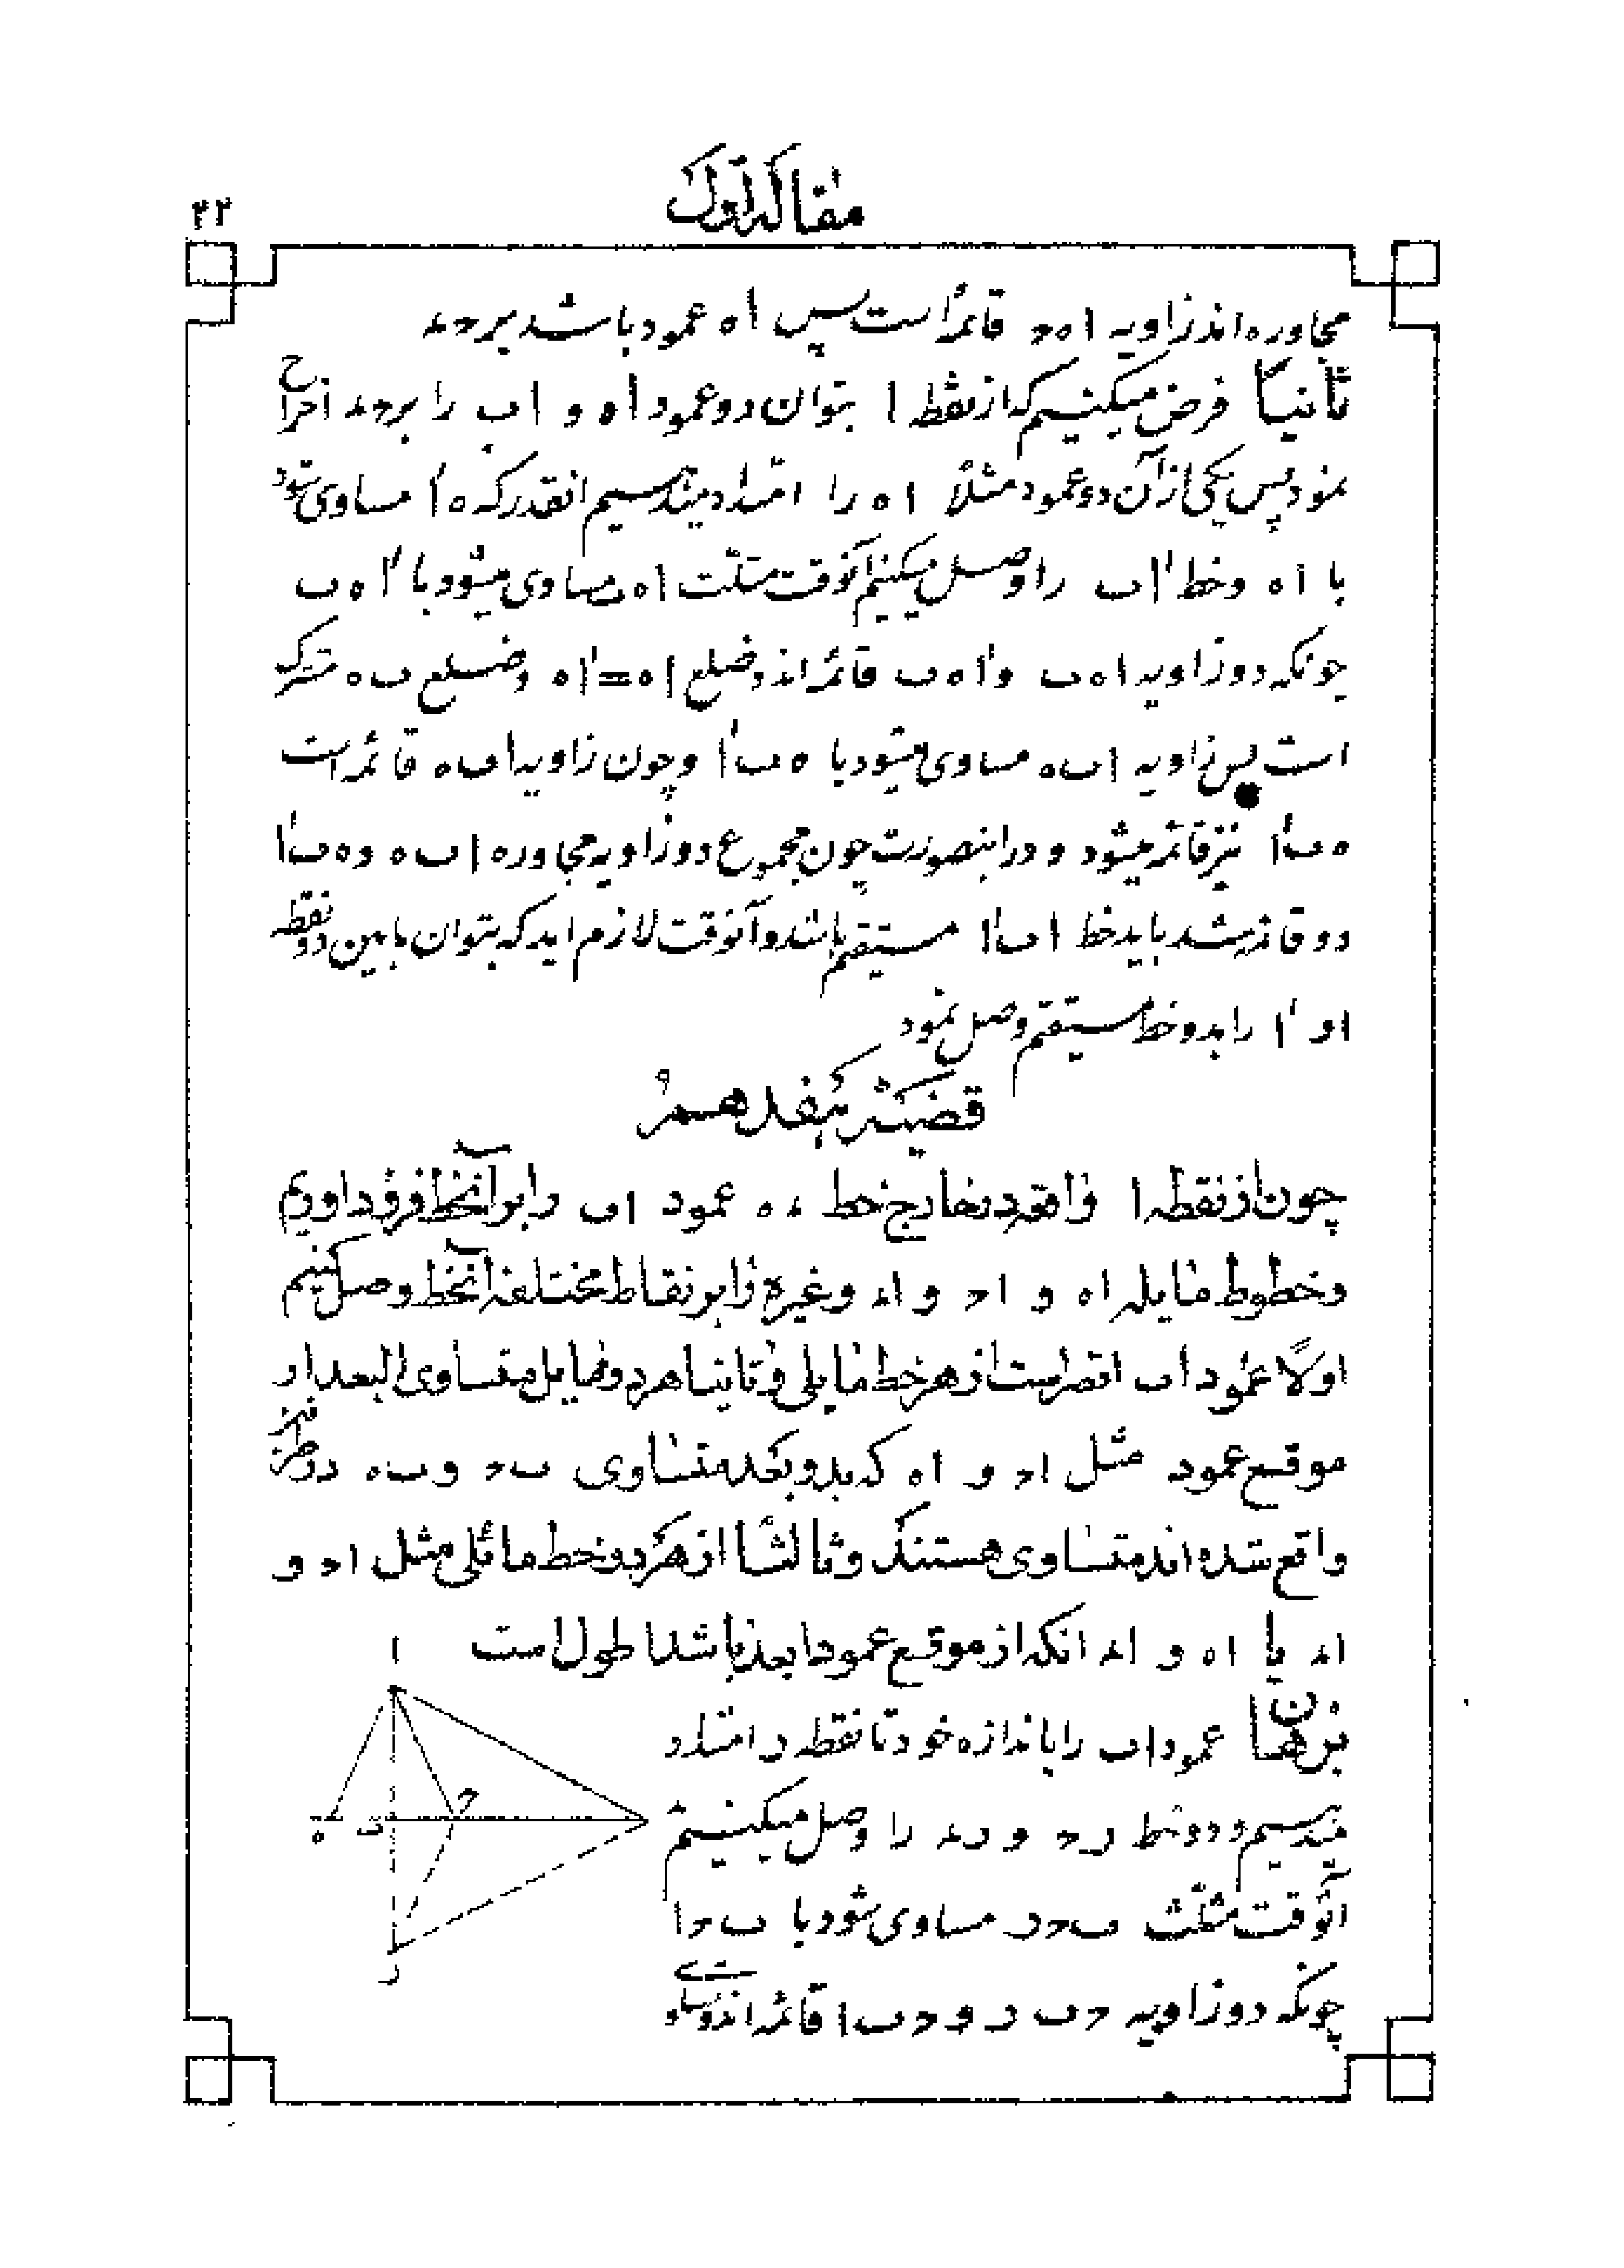 مقاله اول
۲۲
مجاوره‌اند زاویه ا ه ح قائمه است پس ا ه عمود باشد بر ح د
ثانیاً فرض میکنیم که از نقطه ا بتوان دو عمود ا ه و ا ب را بر ح د اخراج
نمود پس یکی از آن دو عمود مثلاً ا ه را امتداد میدهیم انقدر که ه اَ مساوی شود
با ا ه و خط اَ ب را وصل میکنیم آنوقت مثلث ا ه ب مساوی میشود با اَ ه ب
چونکه دو زاویه ا ه ب و اَ ه ب قائمه‌اند و ضلع ا ه = اَ ه و ضلع ب ه مشترک
است پس زاویه ا ب ه مساوی میشود با ه ب اَ و چون زاویه ا ب ه قائمه است
ه ب اَ نیز قائمه میشود و در اینصورت چون مجموع دو زاویه مجاوره ا ب ه و ه ب اَ
دو قائمه شد باید خط ا ب اَ مستقیم باشد و آنوقت لازم اید که بتوان مابین دو نقطه
ا و اَ را بدو خط مستقیم وصل نمود
قضیه هفدهم
چون از نقطه ا واقعه در خارج خط د ه عمود ا ب را بر آنخط فرود اوریم
و خطوط مایله ا ه و ا ح و ا د و غیره را بر نقاط مختلفه آنخط وصل کنیم
اولاً عمود ا ب اقصر است از هر خط مایلی و ثانیا هر دو مایل متساوی البعد از
موقع عمود مثل ا ح و ا ه که بدو بعد متساوی ب ح و ب ه در طرفین
واقع شده‌اند متساوی هستند و ثالثاً از هر دو خط مائلی مثل ا ح و
ا د یا ا ه و ا د انکه از موقع عمود ابعد باشد اطول است
برهان عمود ا ب را باندازه خود تا نقطه ر امتداد
میدهیم و دو خط ر ح و ر د را وصل میکنیم
آنوقت مثلث ب ح ر مساوی شود با ب ح ا
چونکه دو زاویه ح ب ر و ح ب ا قائمه‌اند
ا
ح
ه ب
ر